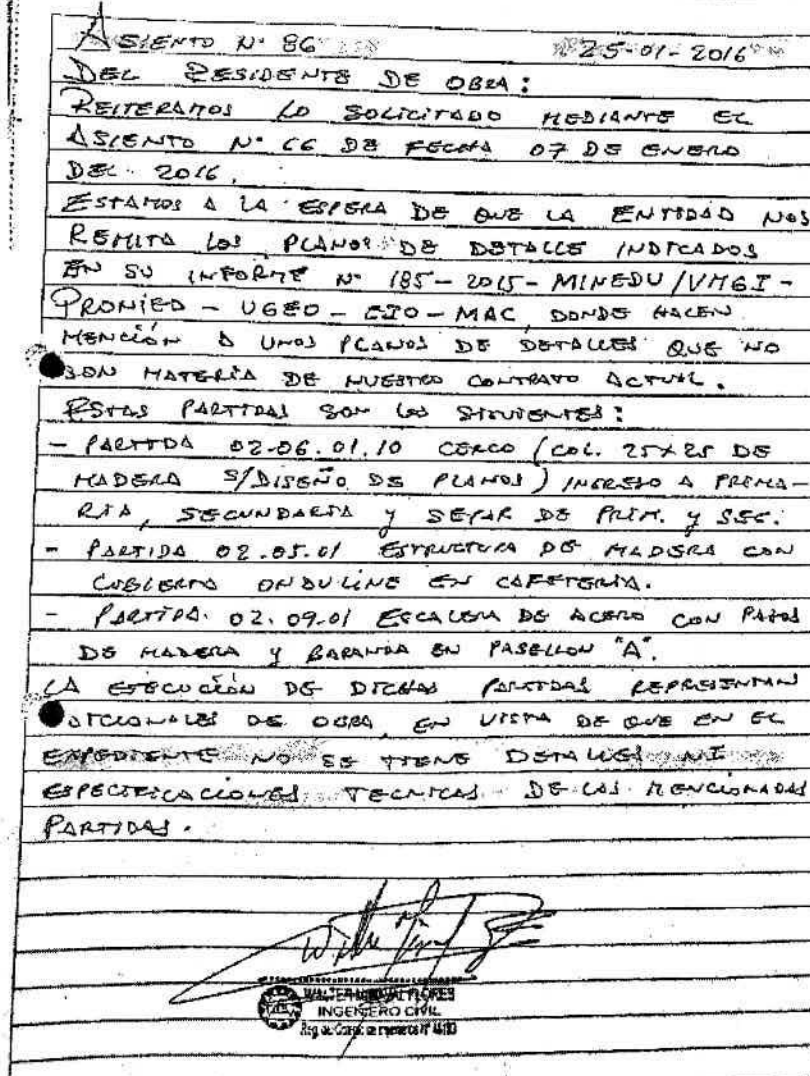 ASIENTO N° 86 25-01-2016
DEL RESIDENTE DE OBRA:
REITERAMOS LO SOLICITADO MEDIANTE EL
ASIENTO N° 66 DE FECHA 07 DE ENERO
DEL 2016.
ESTAMOS A LA ESPERA DE QUE LA ENTIDAD NOS
REMITA LOS PLANOS DE DETALLE INDICADOS
EN SU INFORME N° 185-2015-MINEDU/VMGI-
PRONIED-UGEO-EIO-MAC, DONDE HACEN
MENCIÓN A UNOS PLANOS DE DETALLES QUE NO
SON MATERIA DE NUESTRO CONTRATO ACTUAL.
ESTAS PARTIDAS SON LAS SIGUIENTES:
- PARTIDA 02.06.01.10 CERCO (COL. 25x25 DE
MADERA S/DISEÑO DE PLANOS) INGRESO A PRIMA-
RIA, SECUNDARIA Y SEPAR DE PRIM. Y SEC.
- PARTIDA 02.05.01 ESTRUCTURA DE MADERA CON
CUBIERTA ONDULINE EN CAFETERIA.
- PARTIDA. 02.09.01 ESCALERA DE ACERO CON PASOS
DE MADERA Y BARANDA EN PABELLON "A".
LA EJECUCIÓN DE DICHAS PARTIDAS REPRESENTAN
ADICIONALES DE OBRA, EN VISTA DE QUE EN EL
EXPEDIENTE NO SE TIENE DETALLES NI
ESPECIFICACIONES TECNICAS DE LAS MENCIONADAS
PARTIDAS.
WALTER FLORES
INGENIERO CIVIL